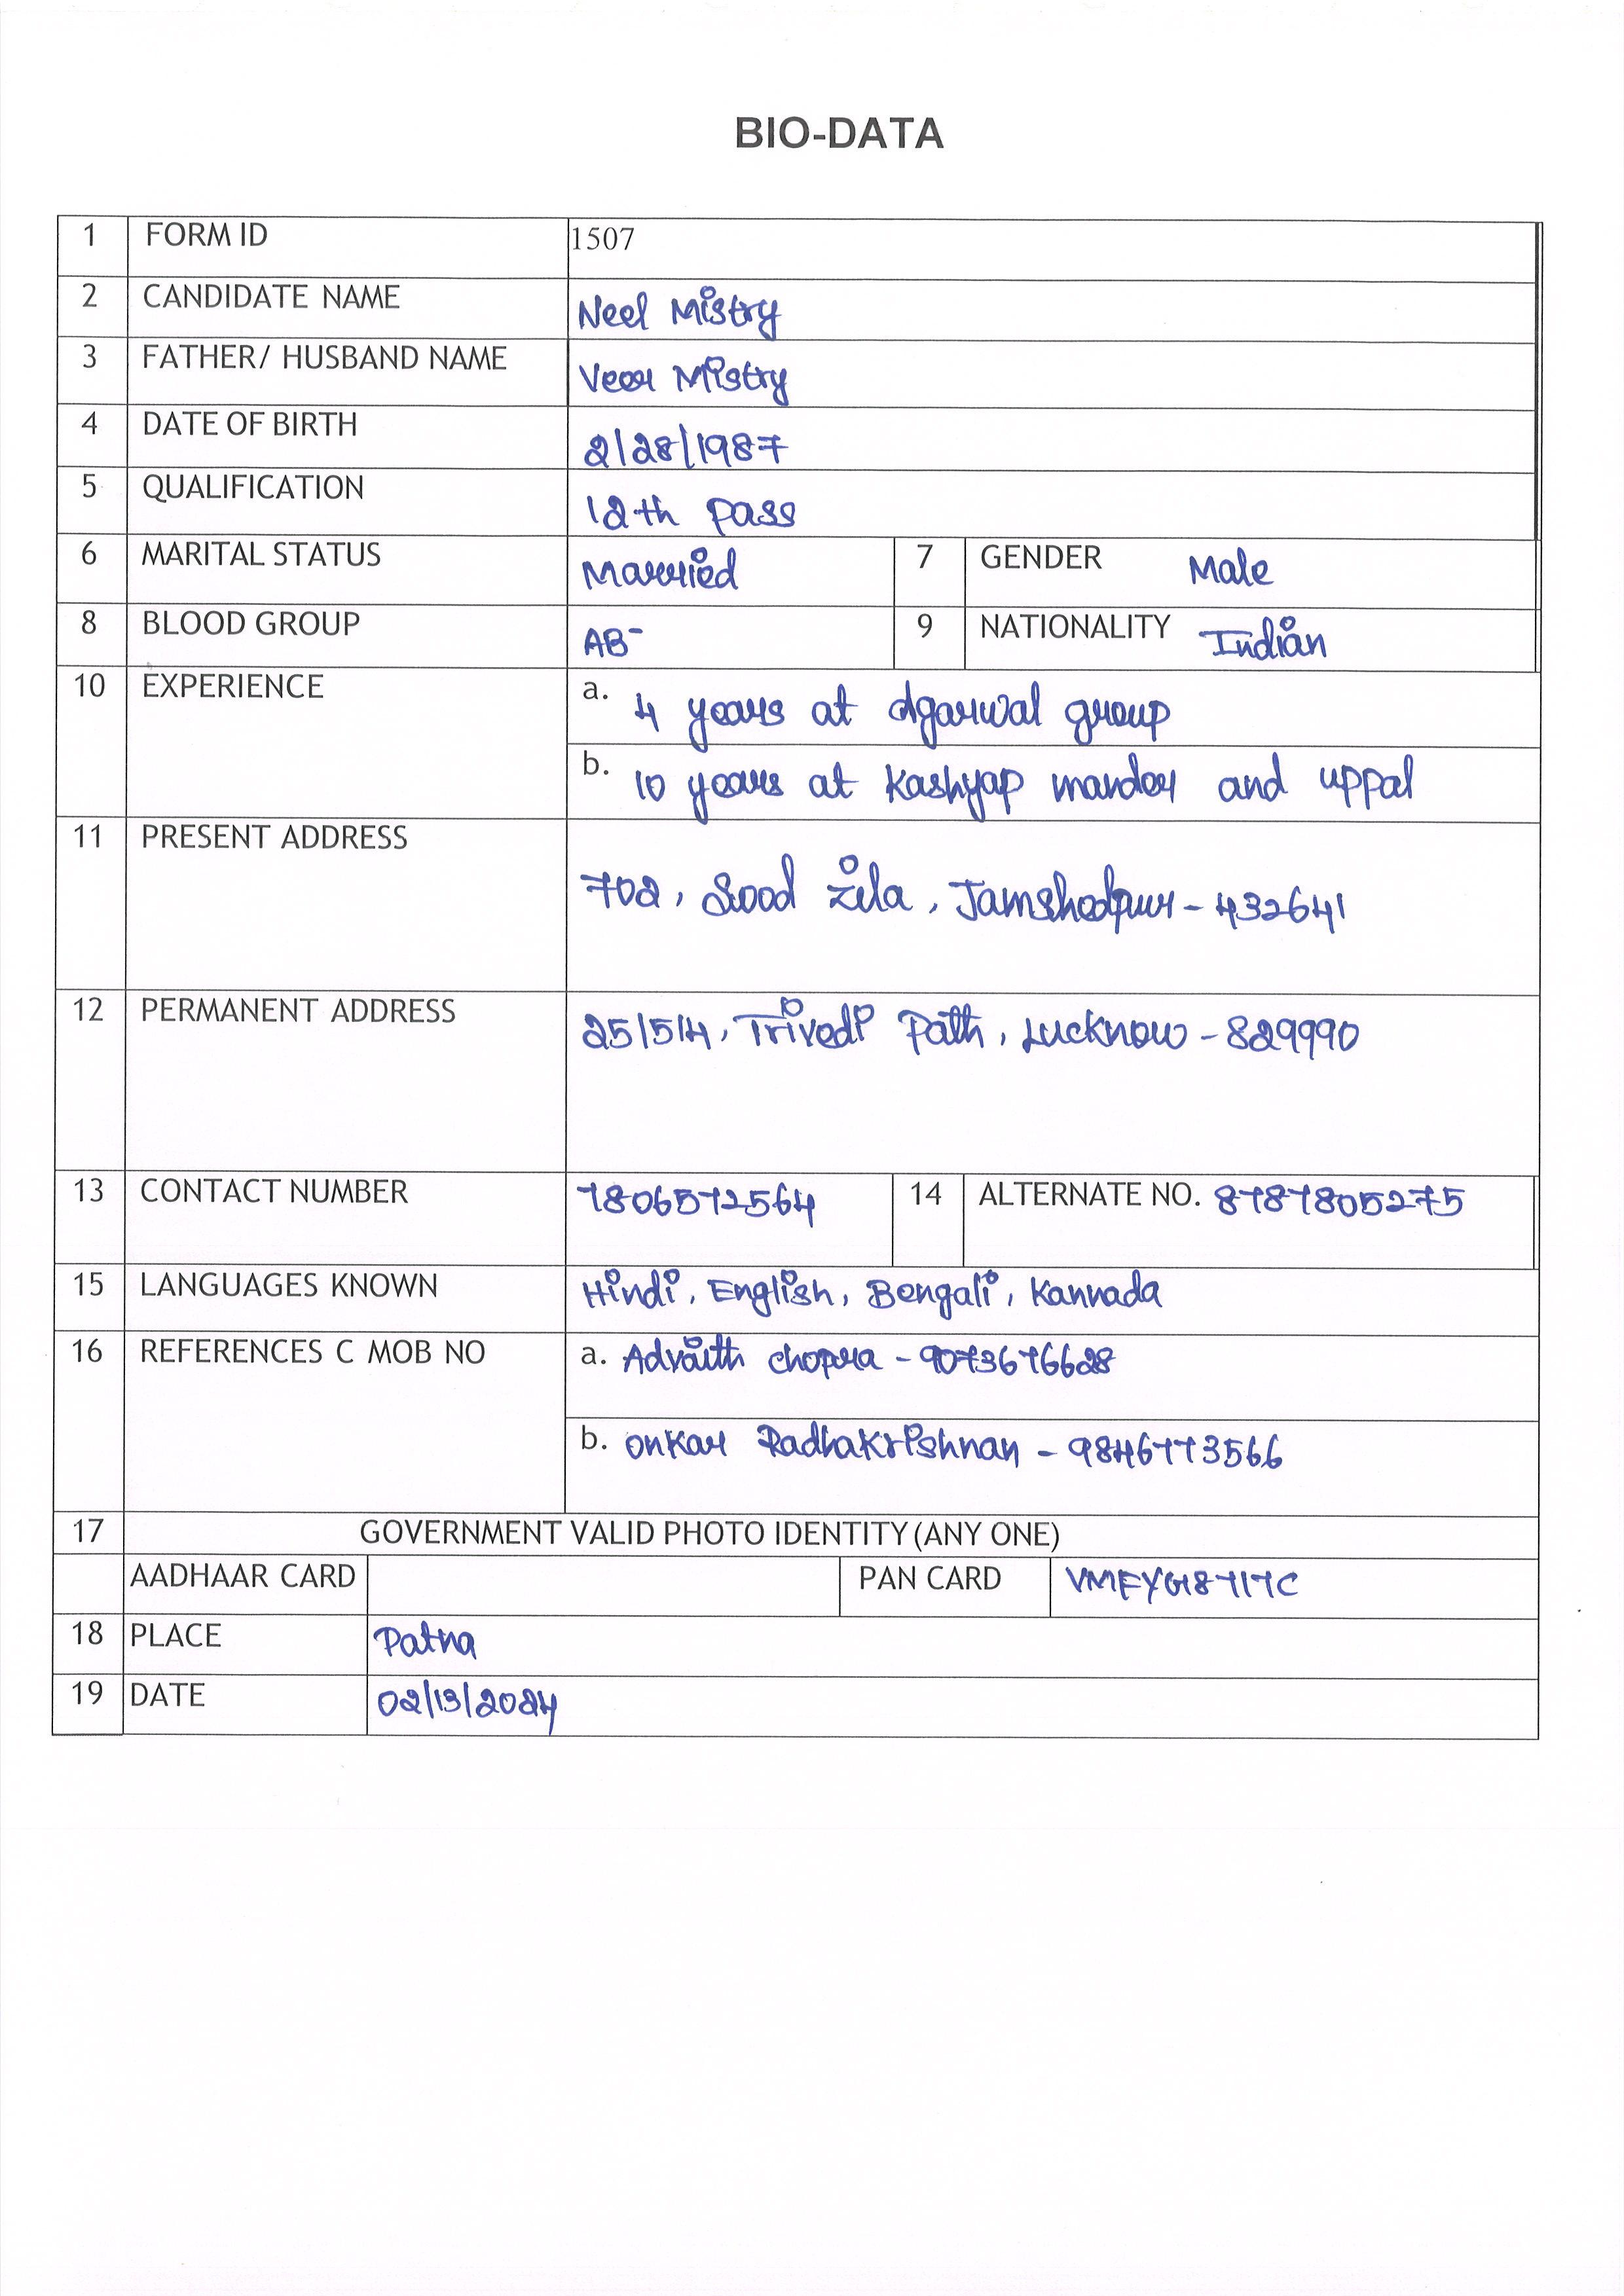 BIO-DATA
1 FORM ID 1507
2 CANDIDATE NAME Neel Mistry
3 FATHER/ HUSBAND NAME Veer Mistry
4 DATE OF BIRTH 2/28/1987
5 QUALIFICATION 12th pass
6 MARITAL STATUS Married 7 GENDER Male
8 BLOOD GROUP AB- 9 NATIONALITY Indian
10 EXPERIENCE a. 4 years at Agarwal group
b. 10 years at Kashyap mander and uppal
11 PRESENT ADDRESS 702, Sood Zila, Jamshedpur - 432641
12 PERMANENT ADDRESS 25/514, Trivedi Path, Lucknow - 829990
13 CONTACT NUMBER 7806572564 14 ALTERNATE NO. 8787805275
15 LANGUAGES KNOWN Hindi, English, Bengali, Kannada
16 REFERENCES C MOB NO a. Advaith chopra - 9073676628
b. Onkar Radhakrishnan - 9846773566
17 GOVERNMENT VALID PHOTO IDENTITY (ANY ONE)
AADHAAR CARD PAN CARD VMFYG8717C
18 PLACE Patna
19 DATE 02/13/2024